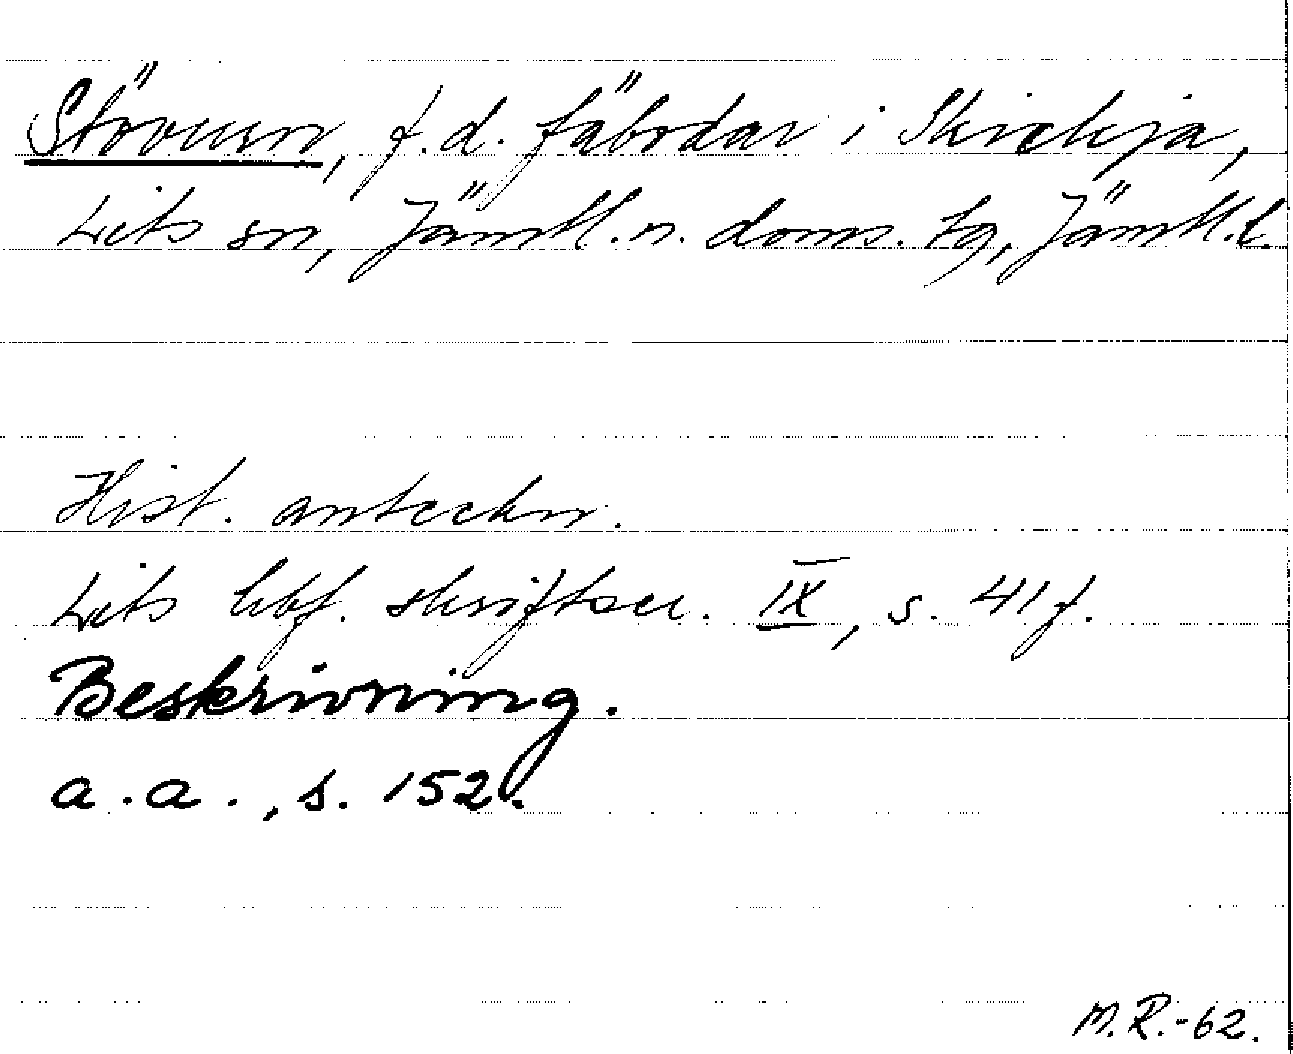 Stövern, f.d. fäbodar i Skickja,
Lits sn, Jämtl. n. doms. tg, Jämtl. l.
Hist. anteckn.
Lits hbf. skriftser. IX, s. 41 f.
Beskrivning.
a.a., s. 152.
M.R.-62.